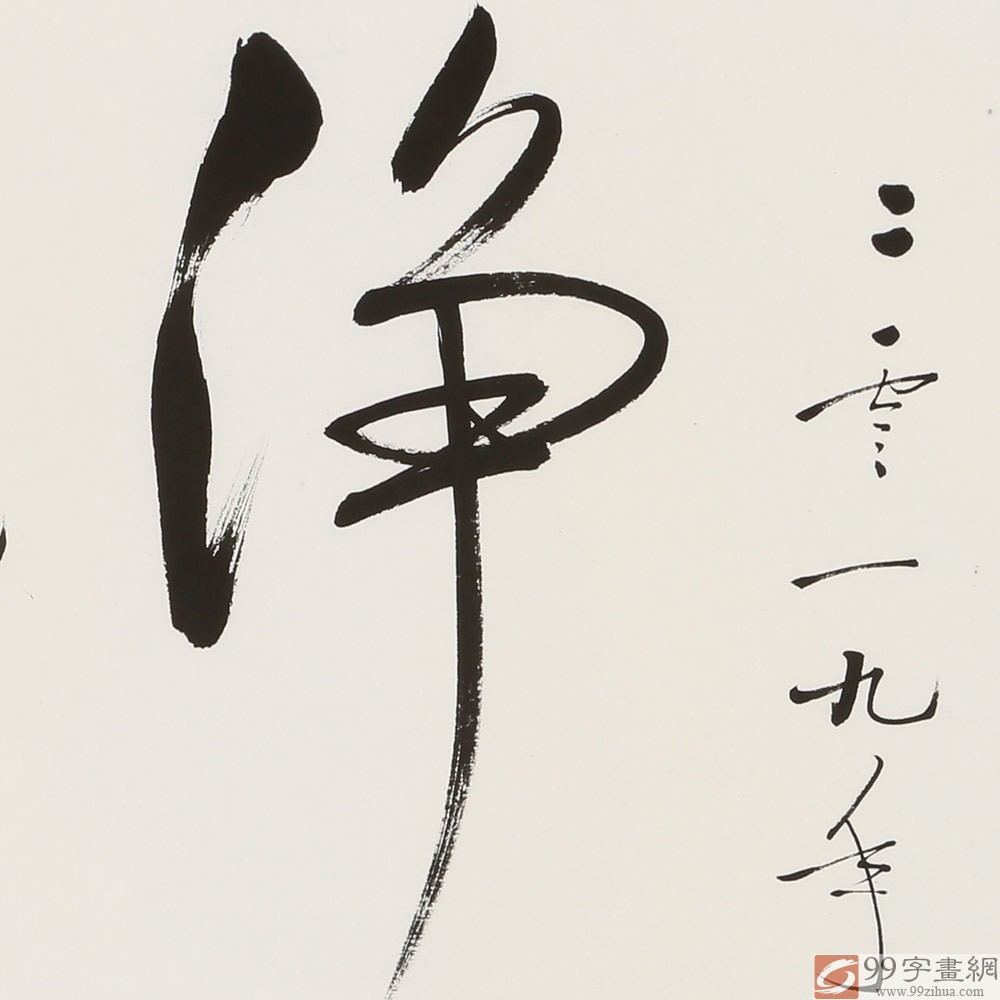 净
二零一九年
99字畫網
www.99zihua.com